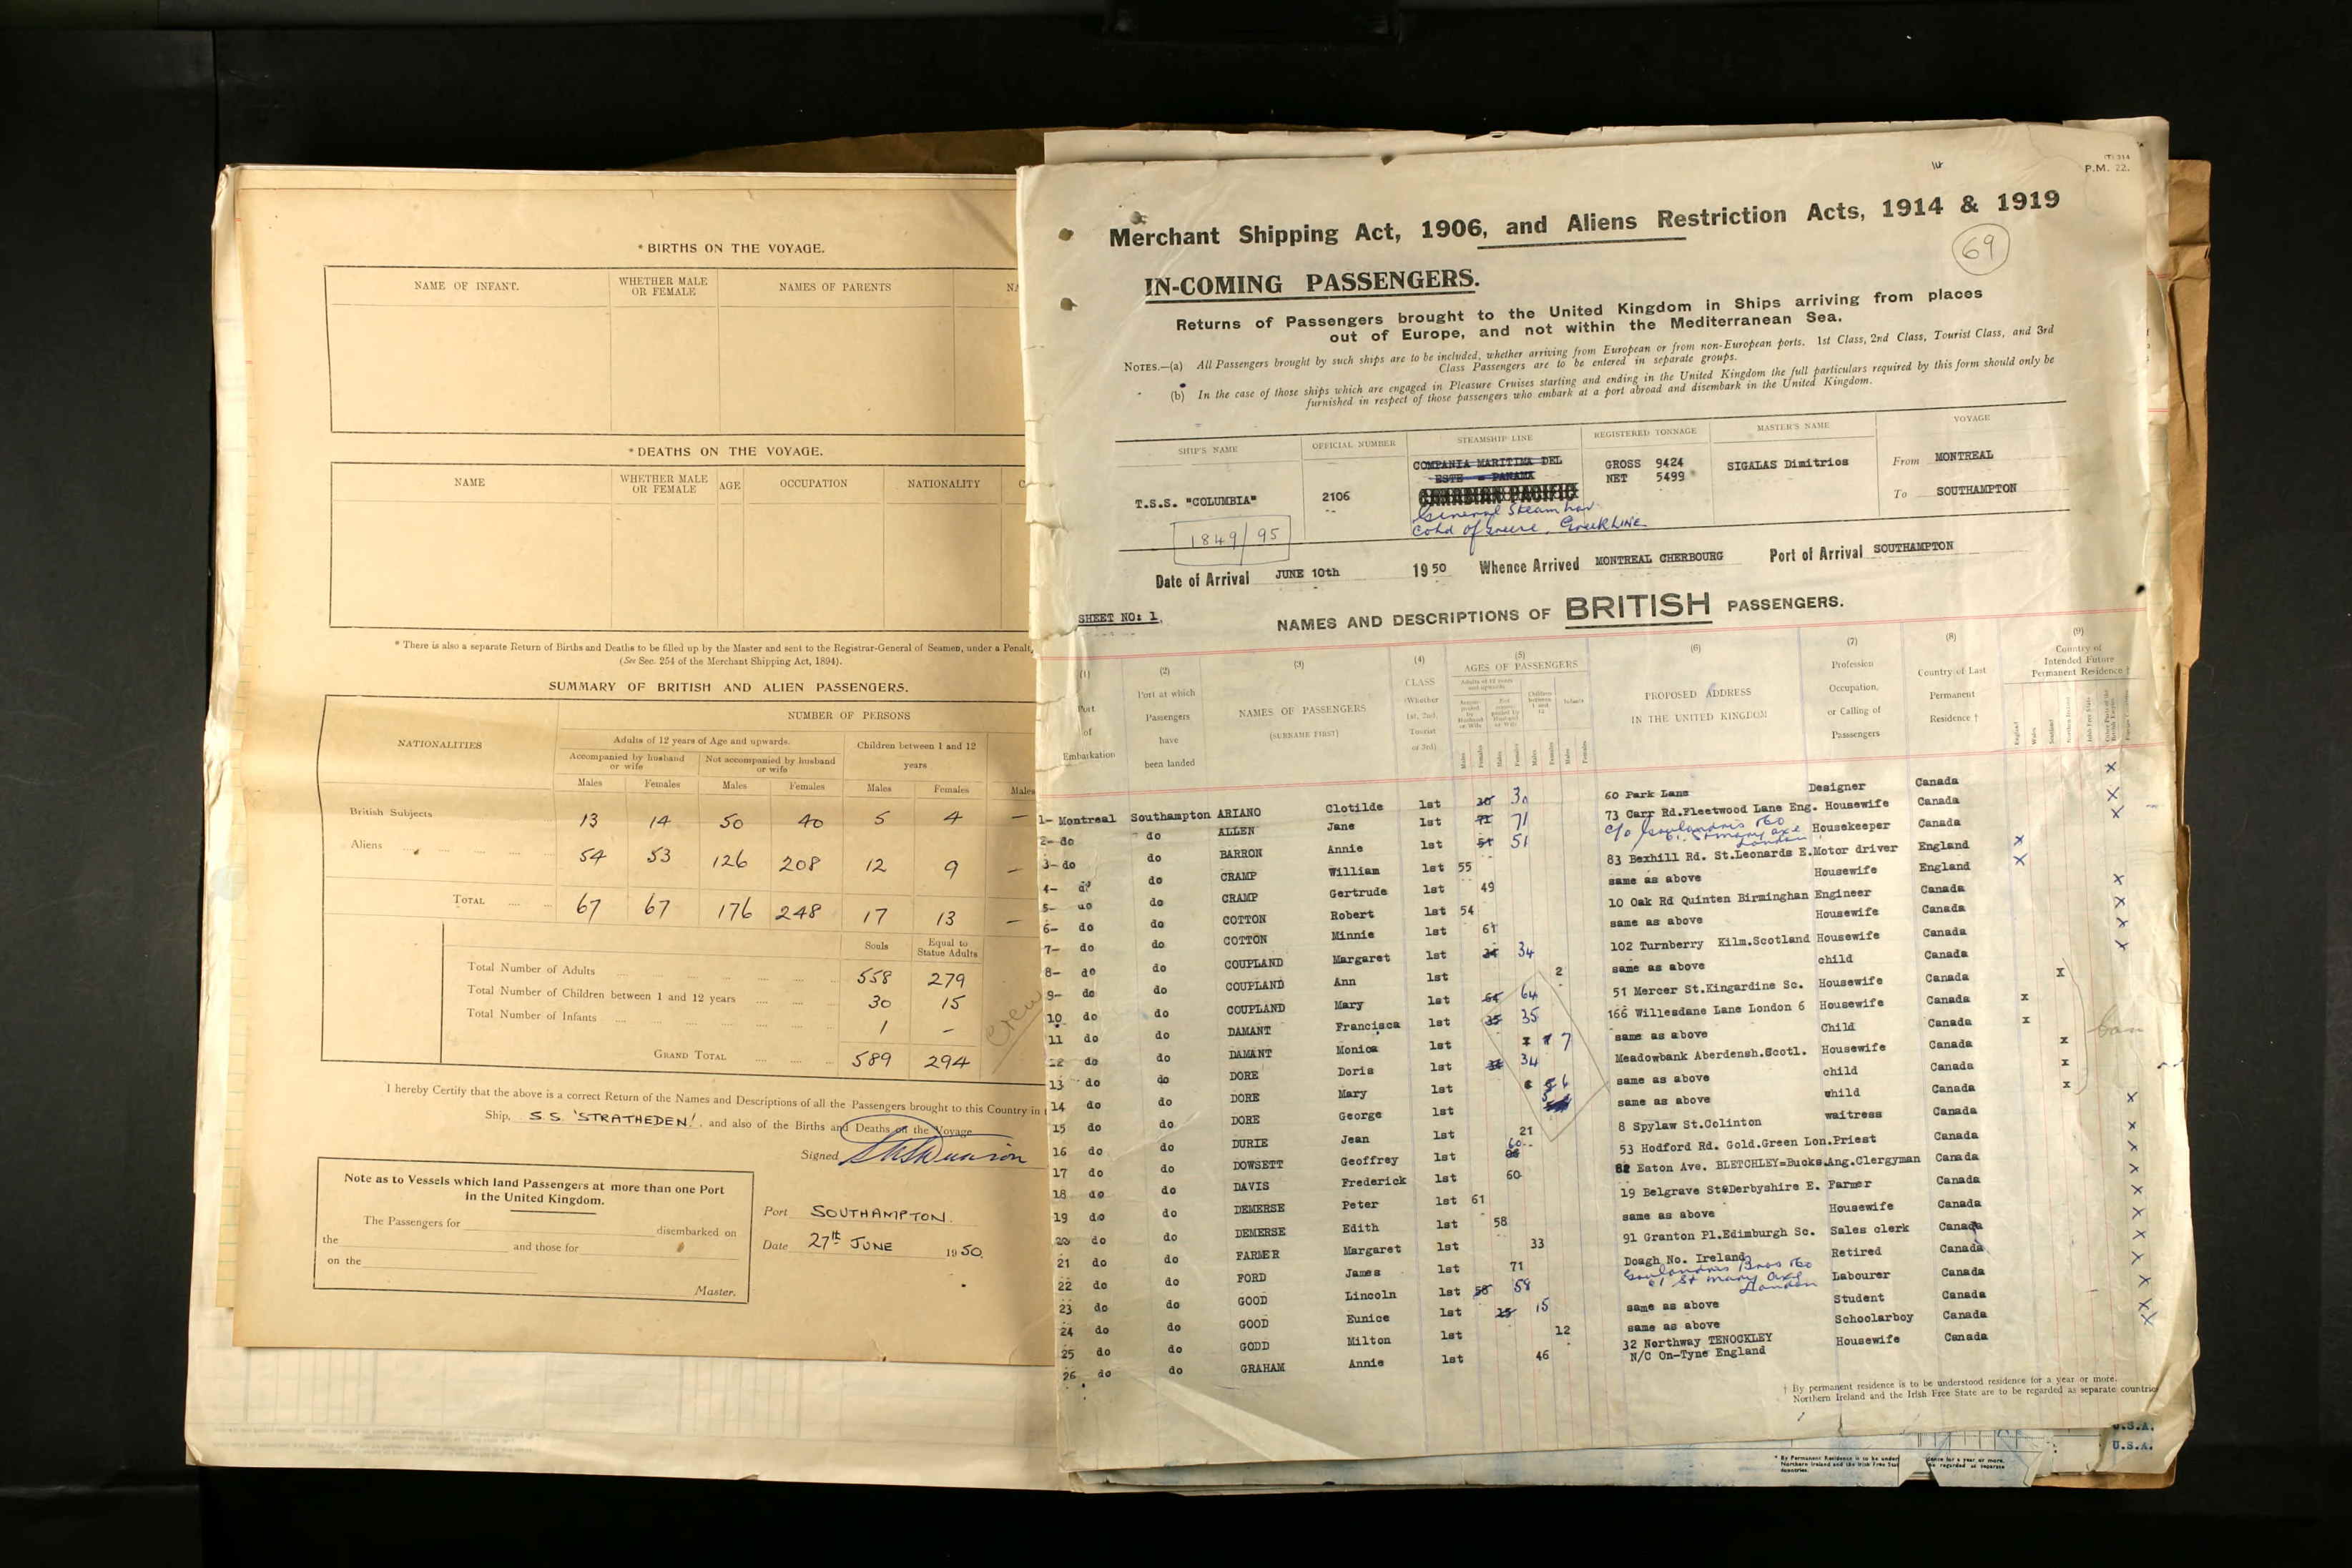 * BIRTHS ON THE VOYAGE.
NAME OF INFANT. WHETHER MALE OR FEMALE NAMES OF PARENTS NA
* DEATHS ON THE VOYAGE.
NAME WHETHER MALE OR FEMALE AGE OCCUPATION NATIONALITY C
* There is also a separate Return of Births and Deaths to be filled up by the Master and sent to the Registrar-General of Seamen, under a Penalt
(See Sec. 254 of the Merchant Shipping Act, 1894).
SUMMARY OF BRITISH AND ALIEN PASSENGERS.
NUMBER OF PERSONS
NATIONALITIES
Adults of 12 years of Age and upwards.
Children between 1 and 12 years
Accompanied by husband or wife
Not accompanied by husband or wife
Males Females Males Females Males Females Males
British Subjects 13 14 50 40 5 4 —
Aliens 54 53 126 208 12 9 —
TOTAL 67 67 176 248 17 13 —
Souls Equal to Statue Adults
Total Number of Adults 558 279
Total Number of Children between 1 and 12 years 30 15
Total Number of Infants 1 —
GRAND TOTAL 589 294
Crew
I hereby Certify that the above is a correct Return of the Names and Descriptions of all the Passengers brought to this Country in
Ship, S.S. 'STRATHEDEN', and also of the Births and Deaths on the Voyage
Signed
Note as to Vessels which land Passengers at more than one Port
in the United Kingdom.
The Passengers for disembarked on
the and those for
on the
Master.
Port SOUTHAMPTON.
Date 27th JUNE 1950.
P.M. 22.
Merchant Shipping Act, 1906, and Aliens Restriction Acts, 1914 & 1919
69
IN-COMING PASSENGERS.
Returns of Passengers brought to the United Kingdom in Ships arriving from places
out of Europe, and not within the Mediterranean Sea.
NOTES.—(a) All Passengers brought by such ships are to be included, whether arriving from European or from non-European ports. 1st Class, 2nd Class, Tourist Class, and 3rd
Class Passengers are to be entered in separate groups.
(b) In the case of those ships which are engaged in Pleasure Cruises starting and ending in the United Kingdom the full particulars required by this form should only be
furnished in respect of those passengers who embark at a port abroad and disembark in the United Kingdom.
SHIP'S NAME OFFICIAL NUMBER STEAMSHIP LINE REGISTERED TONNAGE MASTER'S NAME VOYAGE
COMPANIA MARITIMA DEL
ESTE - PANAMA
CANADIAN PACIFIC
General Steam Nav.
Cohd of Greece. Greek Line
T.S.S. "COLUMBIA" 2106
GROSS 9424
NET 5499
SIGALAS Dimitrios
From MONTREAL
To SOUTHAMPTON
1849/95
Date of Arrival JUNE 10th 1950 Whence Arrived MONTREAL CHERBOURG Port of Arrival SOUTHAMPTON
SHEET NO: 1.
NAMES AND DESCRIPTIONS OF BRITISH PASSENGERS.
(1) Port of Embarkation
(2) Port at which Passengers have been landed
(3) NAMES OF PASSENGERS (SURNAME FIRST)
(4) CLASS (Whether 1st, 2nd, Tourist or 3rd)
(5) AGES OF PASSENGERS
Adults of 12 years and upwards
Children between 1 and 12
Infants
Males Females Males Females Males Females Males Females
(6) PROPOSED ADDRESS IN THE UNITED KINGDOM
(7) Profession Occupation, or Calling of Passengers
(8) Country of Last Permanent Residence †
(9) Country of Intended Future Permanent Residence †
England Wales Scotland Northern Ireland Irish Free State
1- Montreal Southampton ARIANO Clotilde 1st 30 30 60 Park Lane Designer Canada x
2- do do ALLEN Jane 1st 71 71 73 Carr Rd.Fleetwood Lane Eng. Housewife Canada x
3- do do BARRON Annie 1st 51 51 c/o Goulandris Bro 61 St Mary Axe London Housekeeper Canada x
4- do do CRAMP William 1st 55 83 Bexhill Rd. St.Leonards E. Motor driver England x
5- do do CRAMP Gertrude 1st 49 same as above Housewife England x
6- do do COTTON Robert 1st 54 10 Oak Rd Quinten Birminghan Engineer Canada x
7- do do COTTON Minnie 1st 61 same as above Housewife Canada x
8- do do COUPLAND Margaret 1st 34 34 102 Turnberry Kilm.Scotland Housewife Canada x
9- do do COUPLAND Ann 1st 2 same as above child Canada x
10 do do COUPLAND Mary 1st 64 64 51 Mercer St.Kingardine Sc. Housewife Canada x
11 do do DAMANT Francisca 1st 35 35 166 Willesdane Lane London 6 Housewife Canada x
12 do do DAMANT Monica 1st 7 same as above Child Canada x
13 do do DORE Doris 1st 34 Meadowbank Aberdensh.Scotl. Housewife Canada x
14 do do DORE Mary 1st 6 same as above child Canada x
15 do do DORE George 1st same as above child Canada x
16 do do DURIE Jean 1st 21 8 Spylaw St.Colinton waitress Canada x
17 do do DOWSETT Geoffrey 1st 60 53 Hodford Rd. Gold.Green Lon. Priest Canada x
18 do do DAVIS Frederick 1st 60 82 Eaton Ave. BLETCHLEY=Bucks. Ang.Clergyman Canada x
19 do do DEMERSE Peter 1st 61 19 Belgrave St&Derbyshire E. Farmer Canada x
20 do do DEMERSE Edith 1st 58 same as above Housewife Canada x
21 do do FARMER Margaret 1st 33 91 Granton Pl.Edimburgh Sc. Sales clerk Canada x
22 do do FORD James 1st 71 Doagh No. Ireland Retired Canada x
23 do do GOOD Lincoln 1st 58 58 Goulandris Bros 61 St Mary Axe London Labourer Canada x
24 do do GOOD Eunice 1st 15 15 same as above Student Canada x
25 do do GODD Milton 1st 12 same as above Schoolarboy Canada x
26 do do GRAHAM Annie 1st 46 32 Northway TENOCKLEY N/C On-Tyne England Housewife Canada x
† By permanent residence is to be understood residence for a year or more.
Northern Ireland and the Irish Free State are to be regarded as separate countrie
U.S.A.
U.S.A.
* By Permanent Residence is to be under
Northern Ireland and the Irish Free Stat
countries.